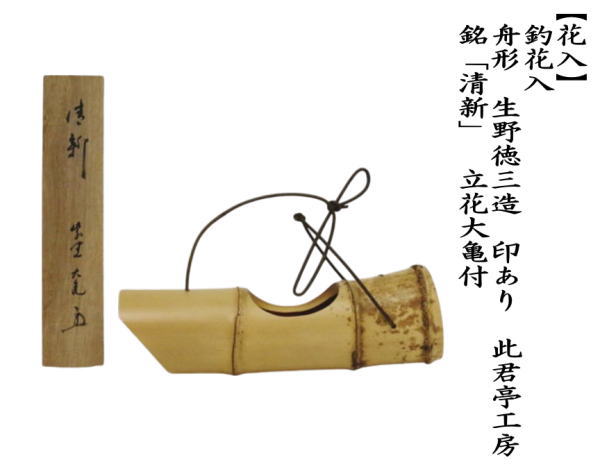 【花入】
釣花入
舟形 生野徳三造 印あり 此君亭工房
銘「清新」 立花大亀付
清新